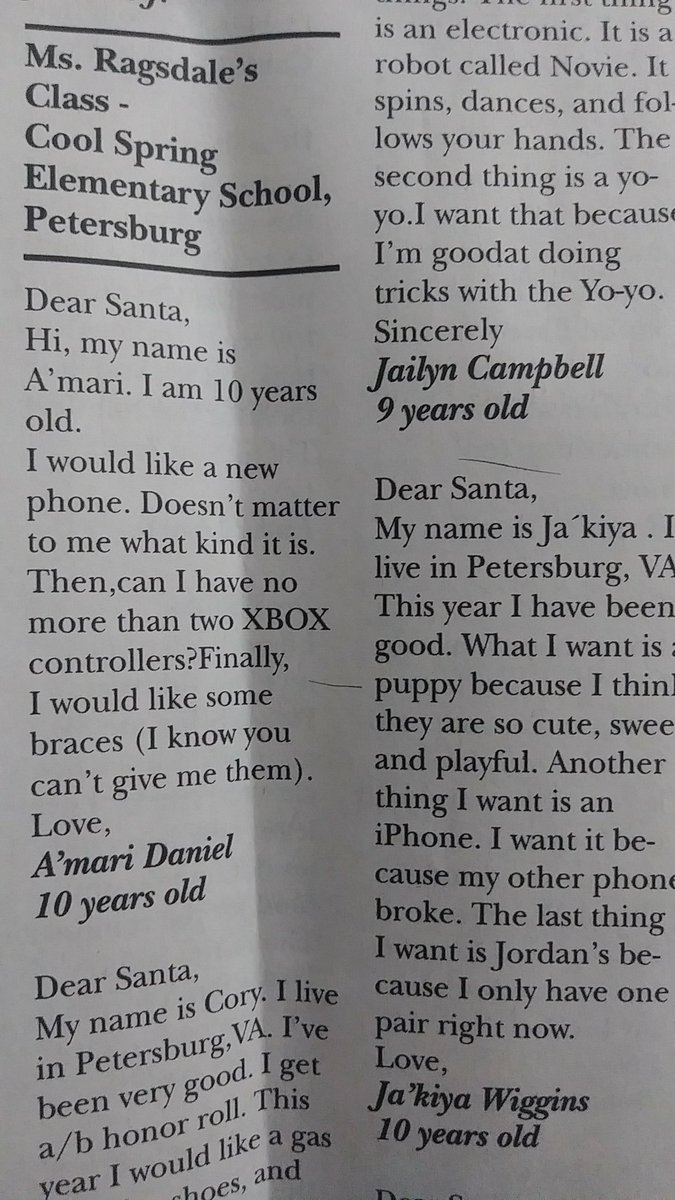 Ms. Ragsdale's
Class -
Cool Spring
Elementary School,
Petersburg
Dear Santa,
Hi, my name is
A'mari. I am 10 years
old.
I would like a new
phone. Doesn't matter
to me what kind it is.
Then,can I have no
more than two XBOX
controllers?Finally,
I would like some
braces (I know you
can't give me them).
Love,
A'mari Daniel
10 years old
Dear Santa,
My name is Cory. I live
in Petersburg,VA. I've
been very good. I get
a/b honor roll. This
year I would like a gas
shoes, and
is an electronic. It is a
robot called Novie. It
spins, dances, and fol-
lows your hands. The
second thing is a yo-
yo.I want that because
I'm goodat doing
tricks with the Yo-yo.
Sincerely
Jailyn Campbell
9 years old
Dear Santa,
My name is Ja´kiya . I
live in Petersburg, VA
This year I have been
good. What I want is a
puppy because I think
they are so cute, swee
and playful. Another
thing I want is an
iPhone. I want it be-
cause my other phone
broke. The last thing
I want is Jordan's be-
cause I only have one
pair right now.
Love,
Ja'kiya Wiggins
10 years old